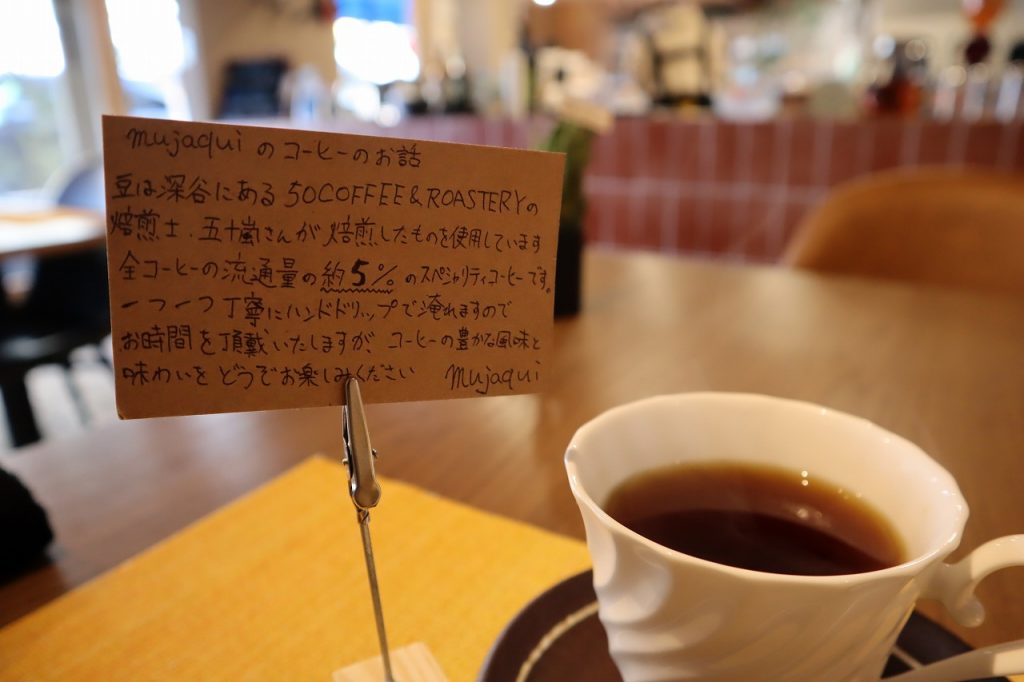 mujaqui のコーヒーのお話
豆は深谷にある 50COFFEE&ROASTERYの
焙煎士、五十嵐さんが焙煎したものを使用しています
全コーヒーの流通量の約5%のスペシャリティコーヒーです。
一つ一つ丁寧にハンドドリップで淹れますので
お時間を頂戴いたしますが、コーヒーの豊かな風味と
味わいをどうぞお楽しみください mujaqui